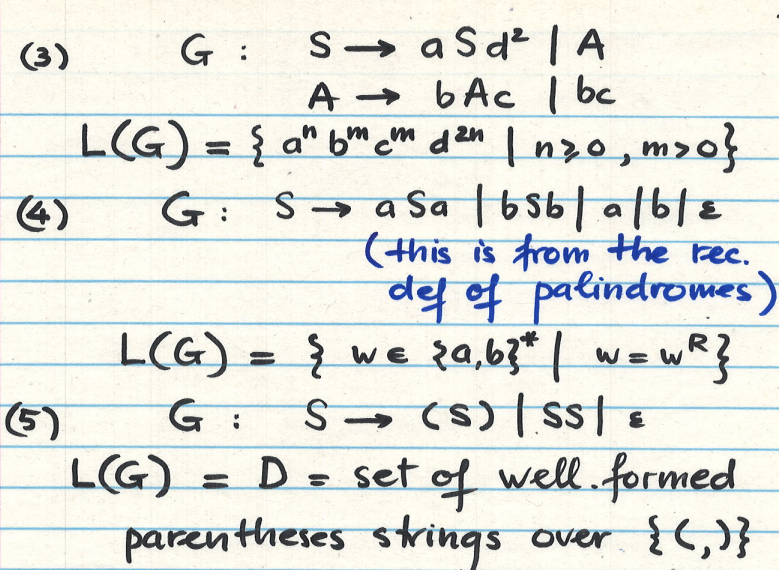 (3) G : S → a S d² | A
A → b A c | bc
L(G) = { aⁿ bᵐ cᵐ d²ⁿ | n ≥ 0 , m > 0 }
(4) G : S → a S a | b S b | a | b | ε
(this is from the rec.
def of palindromes)
L(G) = { w ∈ {a,b}* | w = wᴿ }
(5) G : S → (S) | SS | ε
L(G) = D = set of well-formed
parentheses strings over { (, ) }